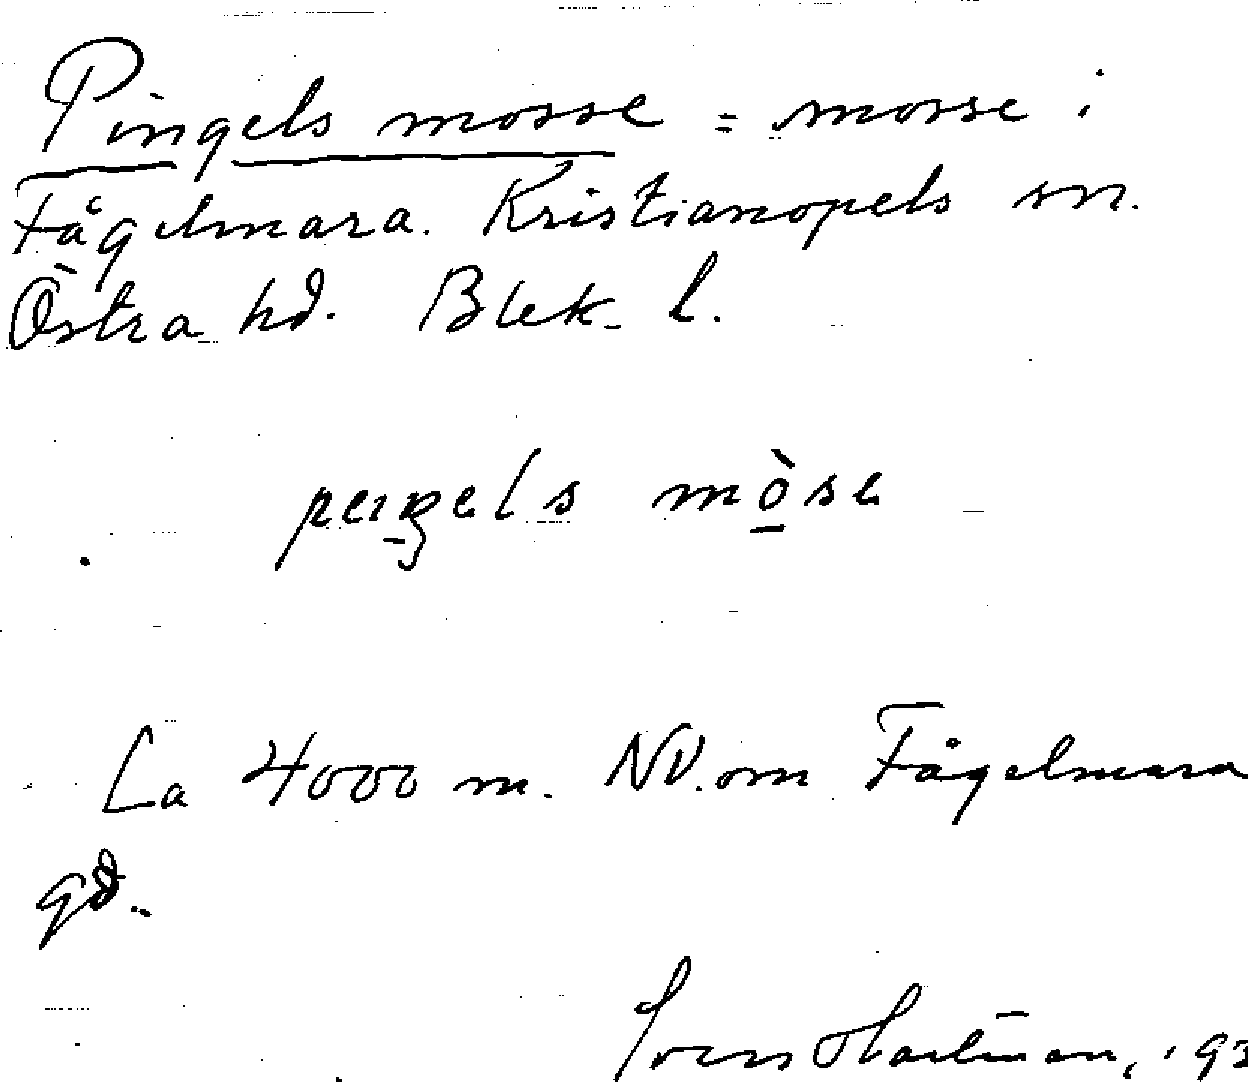 Pingels mosse = mosse i
Fågelmara. Kristianopels sn.
Östra hd. Blek. l.
mòse
Ca 4000 m. NV. om Fågelmara
gd.